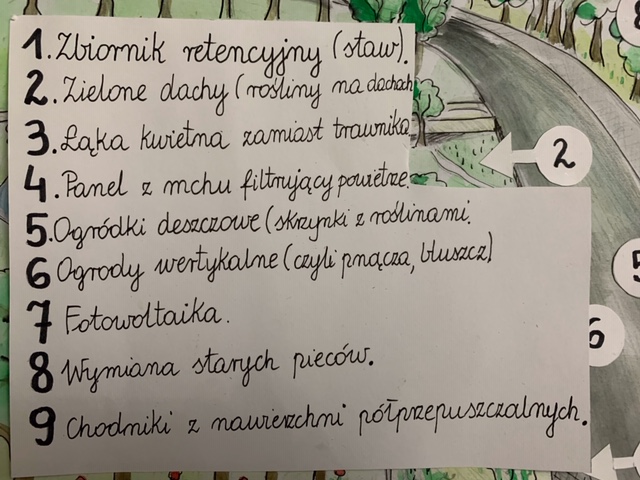 1. Zbiornik retencyjny (staw).
2. Zielone dachy (rośliny na dachach
3. Łąka kwietna zamiast trawnika
4. Panel z mchu filtrujący powietrze.
5. Ogródki deszczowe (skrzynki z roślinami.
6 Ogrody wertykalne (czyli pnącza, bluszcz)
7 Fotowoltaika.
8 Wymiana starych pieców.
9 Chodniki z nawierzchni półprzepuszczalnych.
2
5
6